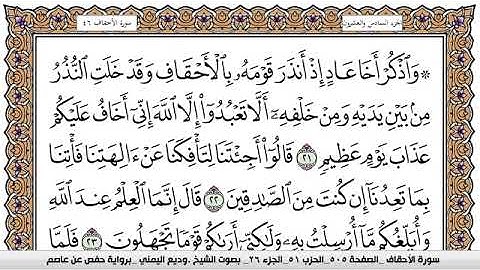 سورة الأحقاف ٤٦
الجزء السادس والعشرون
۞ وَٱذۡكُرۡ أَخَا عَادٍ إِذۡ أَنذَرَ قَوۡمَهُۥ بِٱلۡأَحۡقَافِ وَقَدۡ خَلَتِ ٱلنُّذُرُ
مِنۢ بَيۡنِ يَدَيۡهِ وَمِنۡ خَلۡفِهِۦٓ أَلَّا تَعۡبُدُوٓاْ إِلَّا ٱللَّهَ إِنِّيٓ أَخَافُ عَلَيۡكُمۡ
عَذَابَ يَوۡمٍ عَظِيمٖ ٢١ قَالُوٓاْ أَجِئۡتَنَا لِتَأۡفِكَنَا عَنۡ ءَالِهَتِنَا فَأۡتِنَا
بِمَا تَعِدُنَآ إِن كُنتَ مِنَ ٱلصَّٰدِقِينَ ٢٢ قَالَ إِنَّمَا ٱلۡعِلۡمُ عِندَ ٱللَّهِ
وَأُبَلِّغُكُم مَّآ أُرۡسِلۡتُ بِهِۦ وَلَٰكِنِّيٓ أَرَىٰكُمۡ قَوۡمٗا تَجۡهَلُونَ ٢٣ فَلَمَّا
سورة الأحقاف _الصفحة ٥٠٥_ الحزب ٥١_ الجزء ٢٦_ بصوت الشيخ _وديع اليمني _برواية حفص عن عاصم